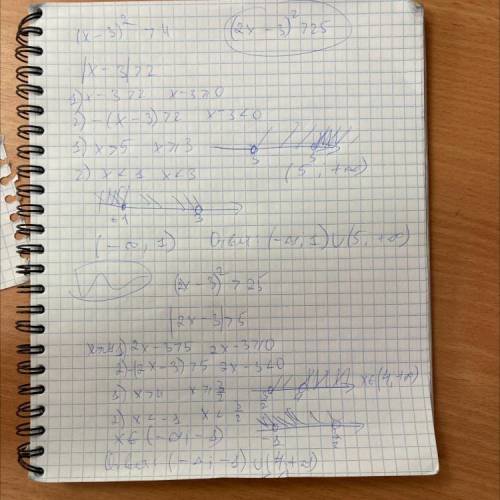 (x - 3)² > 4 (2x - 3)² > 25
|x - 3| > 2
1) x - 3 > 2 x - 3 ≥ 0
2) -(x - 3) > 2 x - 3 < 0
1) x > 5 x ≥ 3
3 5
2) x < 1 x < 3 (5, +∞)
1 3
(-∞, 1) Ответ: (-∞, 1) ∪ (5, +∞)
(2x - 3)² > 25
|2x - 3| > 5
1) 2x - 3 > 5 2x - 3 ≥ 0
2) -(2x - 3) > 5 2x - 3 < 0
1) x > 4 x ≥ 3/2 x ∈ (4, +∞)
2) x < -1 x < 3/2
x ∈ (-∞, -1)
Ответ: (-∞, -1) ∪ (4, +∞)